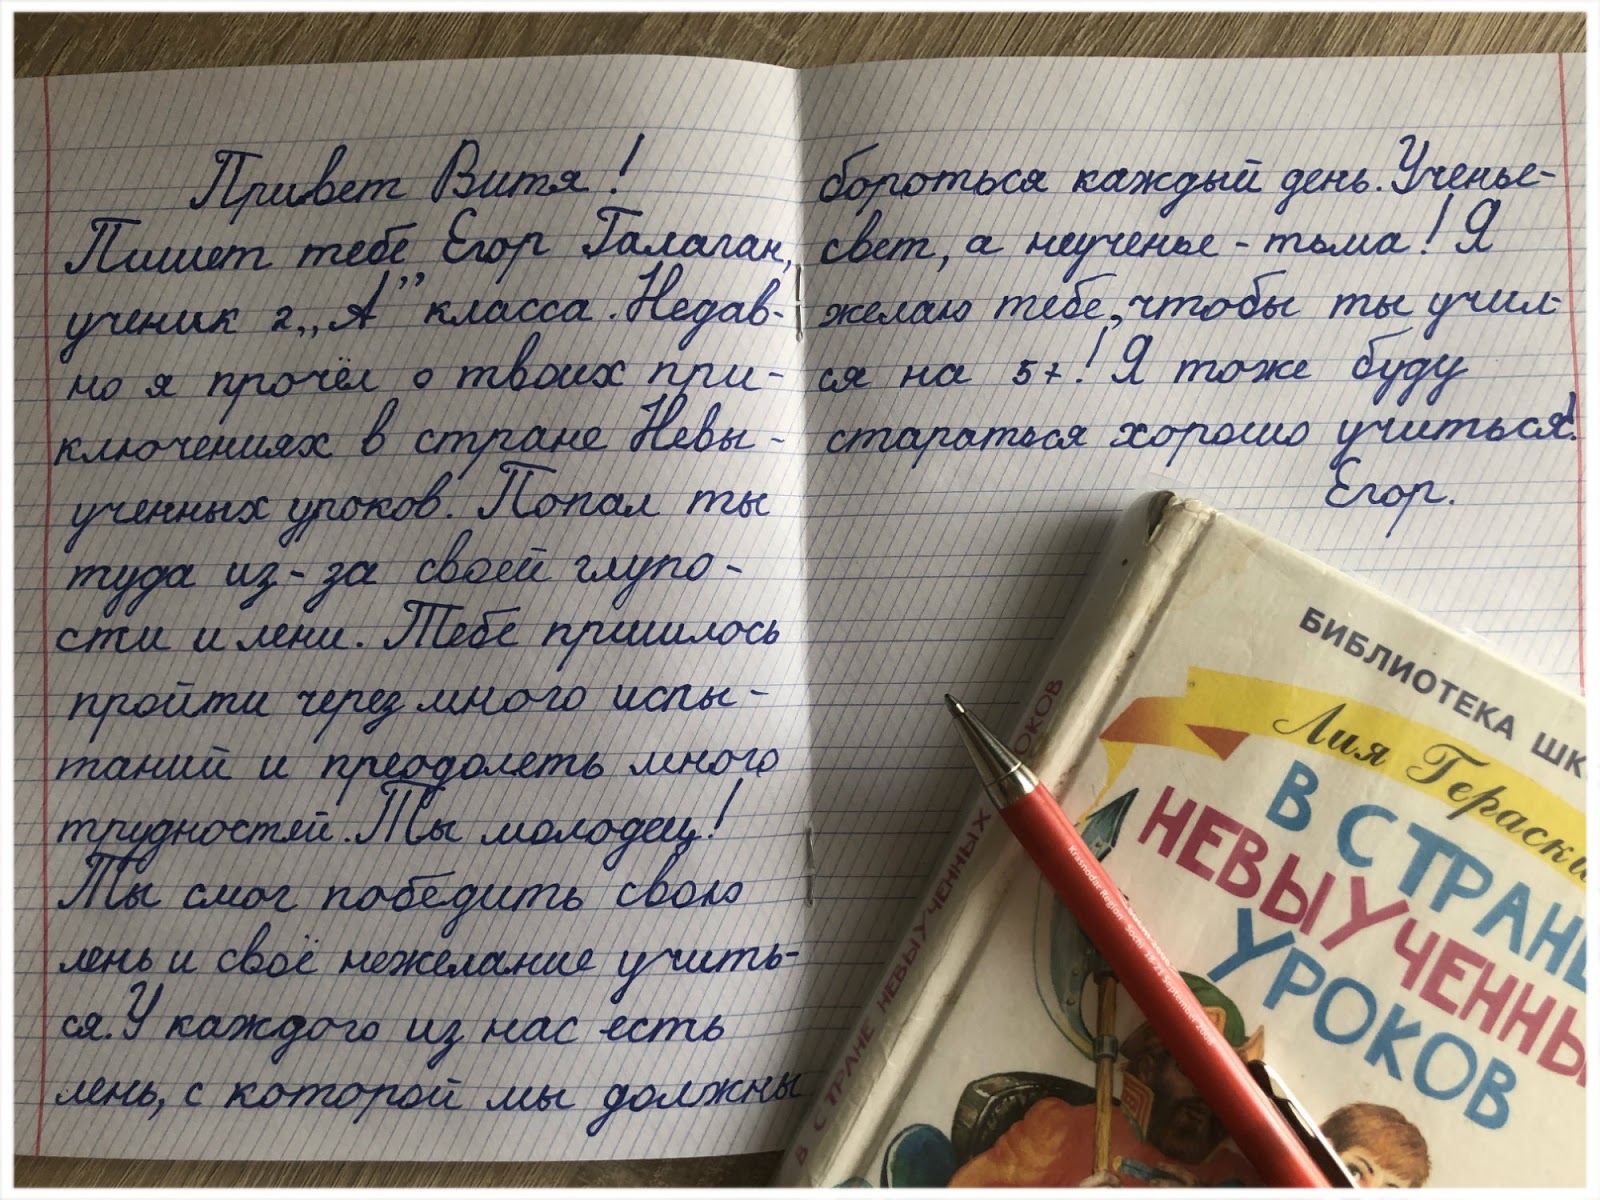 Привет Витя!
Пишет тебе Егор Галаган,
ученик 2 „А” класса. Недав-
но я прочёл о твоих при-
ключениях в стране Невы-
ученных уроков. Попал ты
туда из-за своей глупо-
сти и лени. Тебе пришлось
пройти через много испы-
таний и преодолеть много
трудностей. Ты молодец!
Ты смог победить свою
лень и своё нежелание учить-
ся. У каждого из нас есть
лень, с которой мы должны
бороться каждый день. Ученье-
свет, а неученье - тьма! Я
желаю тебе, чтобы ты учил-
ся на 5+! Я тоже буду
стараться хорошо учиться!
Егор.
БИБЛИОТЕКА ШК
Лия Гераски
В СТРАНЕ
НЕВЫУЧЕННЫ
УРОКОВ
В СТРАНЕ НЕВЫУЧЕННЫХ РОКОВ
Krasnodar Region Sochi 18-21 September 2008